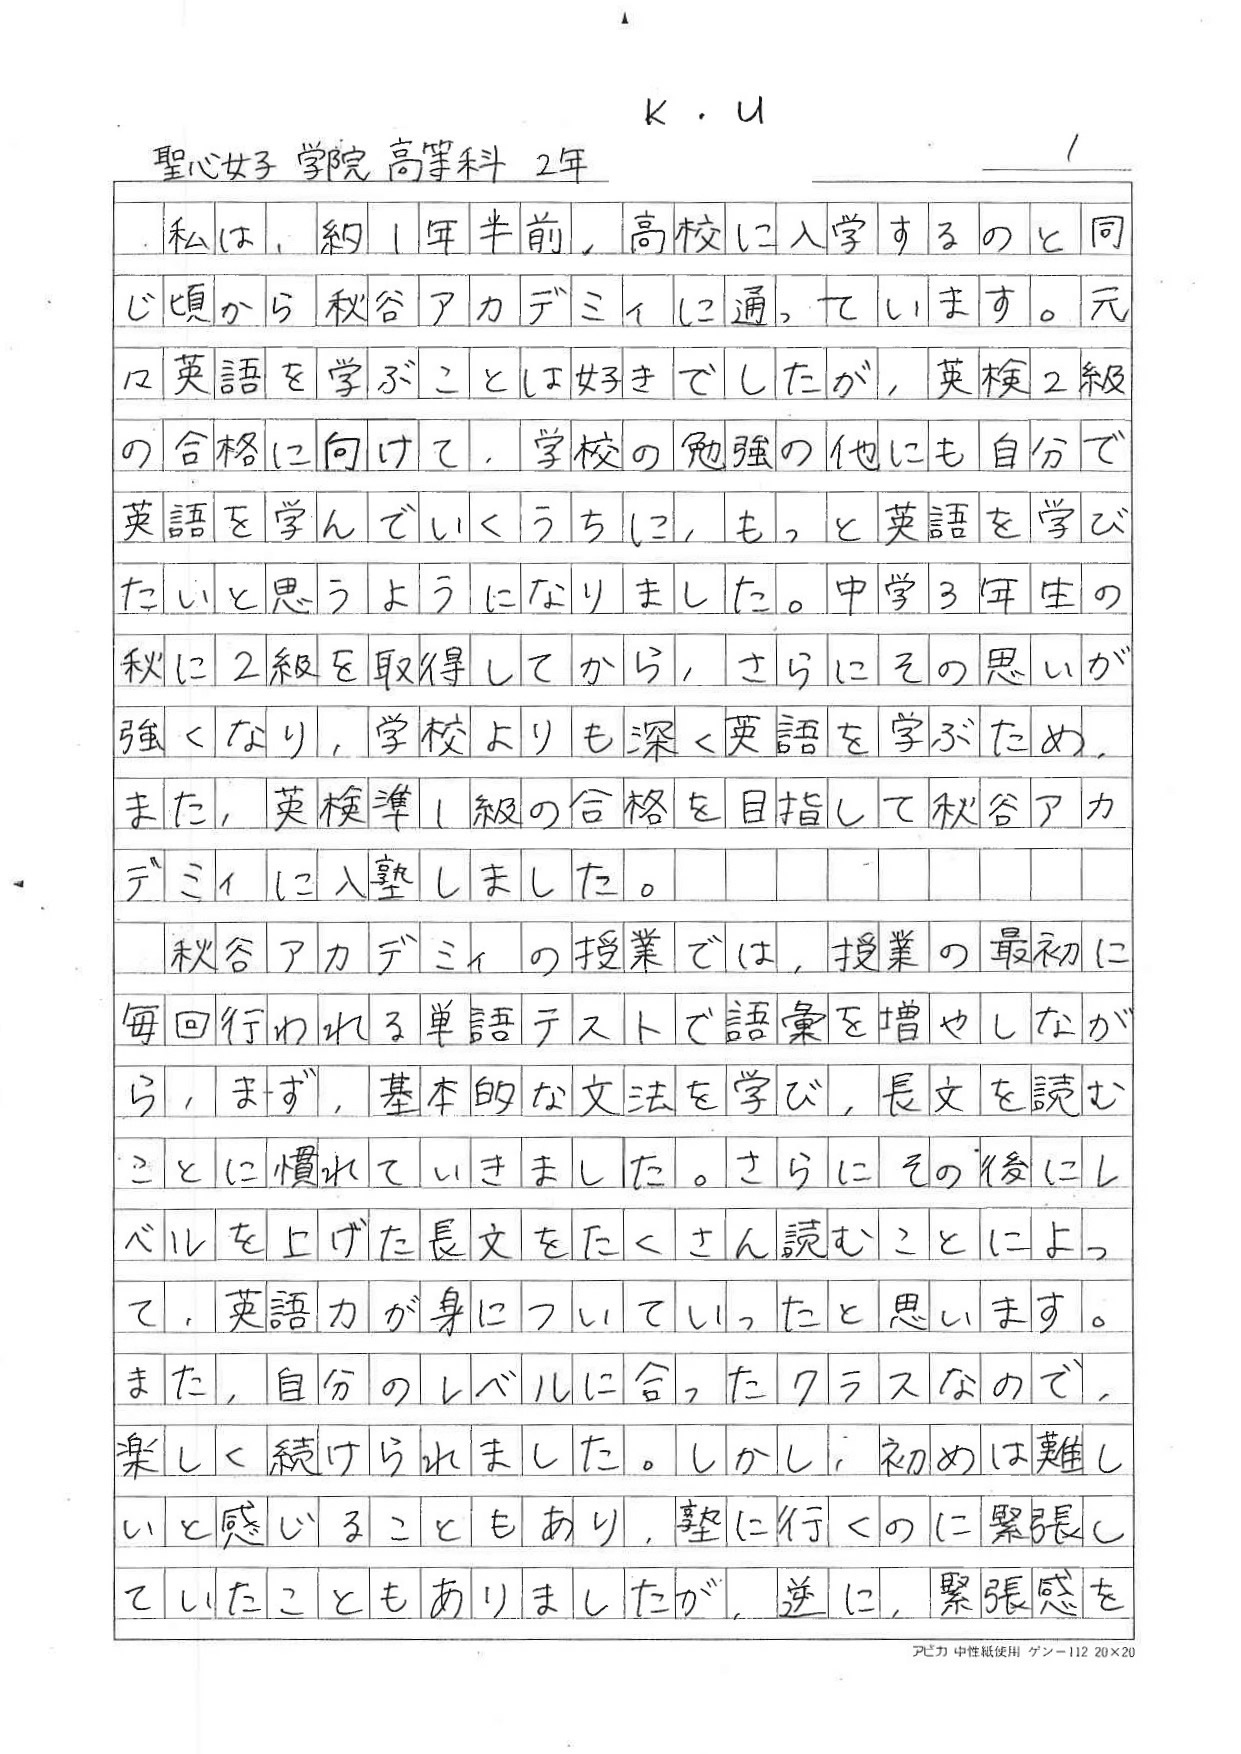 K.U
聖心女子学院高等科 2年
1
私は、約1年半前、高校に入学するのと同
じ頃から秋谷アカデミィに通っています。元
々英語を学ぶことは好きでしたが、英検2級
の合格に向けて、学校の勉強の他にも自分で
英語を学んでいくうちに、もっと英語を学び
たいと思うようになりました。中学3年生の
秋に2級を取得してから、さらにその思いが
強くなり、学校よりも深く英語を学ぶため、
また、英検準1級の合格を目指して秋谷アカ
デミィに入塾しました。
秋谷アカデミィの授業では、授業の最初に
毎回行われる単語テストで語彙を増やしなが
ら、まず、基本的な文法を学び、長文を読む
ことに慣れていきました。さらにその後にレ
ベルを上げた長文をたくさん読むことによっ
て、英語力が身についていったと思います。
また、自分のレベルに合ったクラスなので、
楽しく続けられました。しかし、初めは難し
いと感じることもあり、塾に行くのに緊張し
ていたこともありましたが、逆に、緊張感を
アピカ 中性紙使用 ゲンー112 20×20